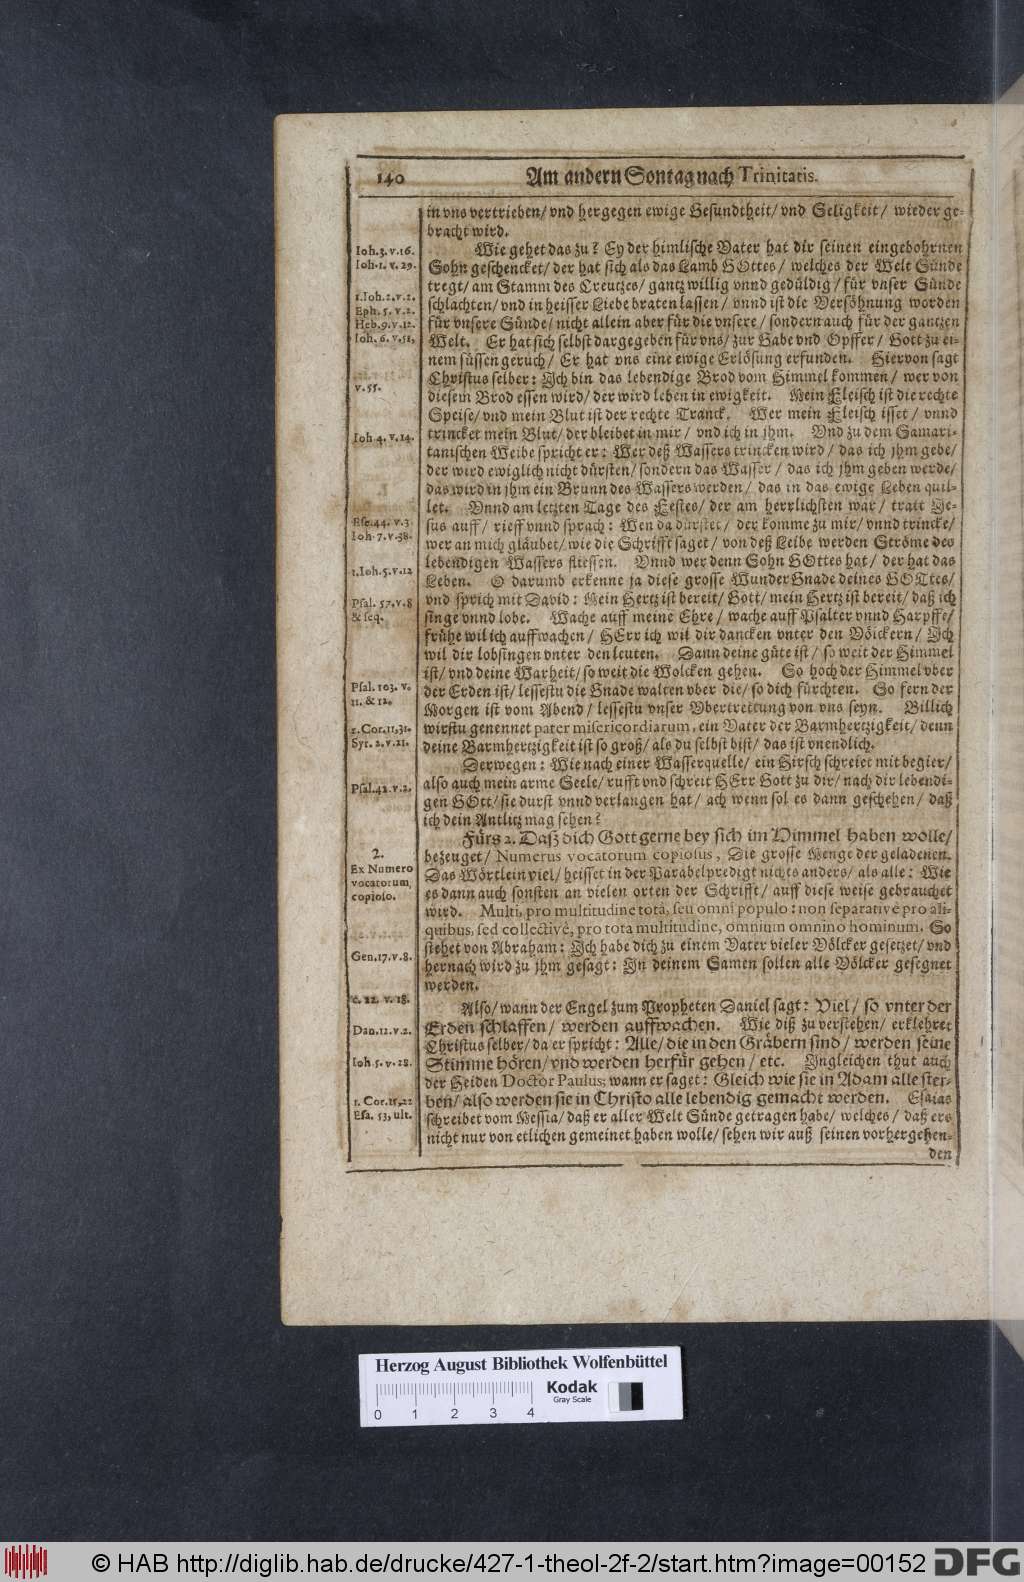 140
Am andern Sontag nach Trinitatis.
in vns vertrieben/ vnd hergegen ewige Gesundtheit/ vnd Seligkeit/ wieder ge-
bracht wird.
Wie gehet das zu? Ey der himlische Vater hat dir seinen eingebohrnen
Sohn geschencket/ der hat sich als das Lamb GOttes/ welches der Welt Sünde
tregt/ am Stamm des Creutzes/ gantz willig vnnd gedüldig/ für vnser Sünde
schlachten/ vnd in heisser Liebe braten lassen/ vnnd ist die Versöhnung worden
für vnsere Sünde/ nicht allein aber für die vnsere/ sondern auch für der gantzen
Welt. Er hat sich selbst dargegeben für vns/ zur Gabe vnd Opffer/ Gott zu ei-
nem süssen geruch/ Er hat vns eine ewige Erlösung erfunden. Hiervon sagt
Christus selber: Ich bin das lebendige Brod vom Himmel kommen/ wer von
diesem Brod essen wird/ der wird leben in ewigkeit. Mein Fleisch ist die rechte
Speise/ vnd mein Blut ist der rechte Tranck. Wer mein Fleisch isset/ vnnd
trincket mein Blut/ der bleibet in mir/ vnd ich in jhm. Vnd zu dem Samari-
tanischen Weibe spricht er: Wer deß Wassers trincken wird/ das ich jhm gebe/
der wird ewiglich nicht dürsten/ sondern das Wasser/ das ich jhm geben werde/
das wird in jhm ein Brunn des Wassers werden/ das in das ewige Leben quil-
let. Vnnd am letzten Tage des Festes/ der am herrlichsten war/ tratt Je-
sus auff/ rieff vnnd sprach: Wen da dürstet/ der komme zu mir/ vnnd trincke/
wer an mich gläubet/ wie die Schrifft saget/ von deß Leibe werden Ströme des
lebendigen Wassers fliessen. Vnnd wer denn Sohn GOttes hat/ der hat das
Leben. O darumb erkenne ja diese grosse Wunder Gnade deines GOTtes/
vnd sprich mit David: Mein Hertz ist bereit/ Gott/ mein Hertz ist bereit/ daß ich
singe vnnd lobe. Wache auff meine Ehre/ wache auff Psalter vnnd Harpffe/
frühe wil ich auffwachen/ HErr ich wil dir dancken vnter den Völckern/ Ich
wil dir lobsingen vnter den leuten. Dann deine güte ist/ so weit der Himmel
ist/ vnd deine Warheit/ so weit die Wolcken gehen. So hoch der Himmel vber
der Erden ist/ lessestu die Gnade walten vber die/ so dich fürchten. So fern der
Morgen ist vom Abend/ lessestu vnser Vbertrettung von vns seyn. Billich
wirstu genennet pater misericordiarum, ein Vater der Barmhertzigkeit/ denn
deine Barmhertzigkeit ist so groß/ als du selbst bist/ das ist vnendlich.
Derwegen: Wie nach einer Wasserquelle/ ein Hirsch schreiet mit begier/
also auch mein arme Seele/ rufft vnd schreit HErr Gott zu dir/ nach dir lebendi-
gen GOtt/ sie durst vnnd verlangen hat/ ach wenn sol es dann geschehen/ daß
ich dein Antlitz mag sehen?
Fürs 2. Daß dich Gott gerne bey sich im Himmel haben wolle/
bezeuget/ Numerus vocatorum copiosus, Die grosse Menge der geladenen.
Das Wörtlein viel/ heisset in der Parabelpredigt nichts anders/ als alle: Wie
es dann auch sonsten an vielen orten der Schrifft/ auff diese weise gebrauchet
wird. Multi, pro multitudine tota, seu omni populo: non separativé pro ali-
quibus, sed collectivé, pro tota multitudine, omnium omnino hominum. So
stehet von Abraham: Ich habe dich zu einem Vater vieler Völcker gesetzet/ vnd
hernach wird zu jhm gesagt: In deinem Samen sollen alle Völcker gesegnet
werden.
Also/ wann der Engel zum Propheten Daniel sagt: Viel/ so vnter der
Erden schlaffen/ werden auffwachen. Wie diß zu verstehen/ erklehret
Christus selber/ da er spricht: Alle/ die in den Gräbern sind/ werden seine
Stimme hören/ vnd werden herfür gehen/ etc. Ingleichen thut auch
der Heiden Doctor Paulus, wann er saget: Gleich wie sie in Adam alle ster-
ben/ also werden sie in Christo alle lebendig gemacht werden. Esaias
schreibet vom Messia/ daß er aller Welt Sünde getragen habe/ welches/ daß ers
nicht nur von etlichen gemeinet haben wolle/ sehen wir auß seinen vorhergehen-
den
Ioh. 3. v. 16.
Ioh. 1. v. 29.
1. Ioh. 2. v. 2.
Eph. 5. v. 2.
Heb. 9. v. 12.
Ioh. 6. v. 51,
v. 55.
Ioh 4. v. 14.
Ese. 44. v. 3
Ioh 7. v. 38.
1. Ioh. 5. v. 12
Psal. 57. v. 8
& seq.
Psal. 103. v.
11. & 12.
2. Cor. 11, 31.
Syr. 2. v. 21.
Psal. 42. v. 2.
2.
Ex Numero
vocatorum,
copioso.
Gen. 17. v. 8.
c. 22. v. 18.
Dan. 12. v. 2.
Ioh. 5. v. 28.
1. Cor. 15, 22
Esa. 53, ult.
Herzog August Bibliothek Wolfenbüttel
Kodak
Gray Scale
0 1 2 3 4
© HAB http://diglib.hab.de/drucke/427-1-theol-2f-2/start.htm?image=00152
DFG